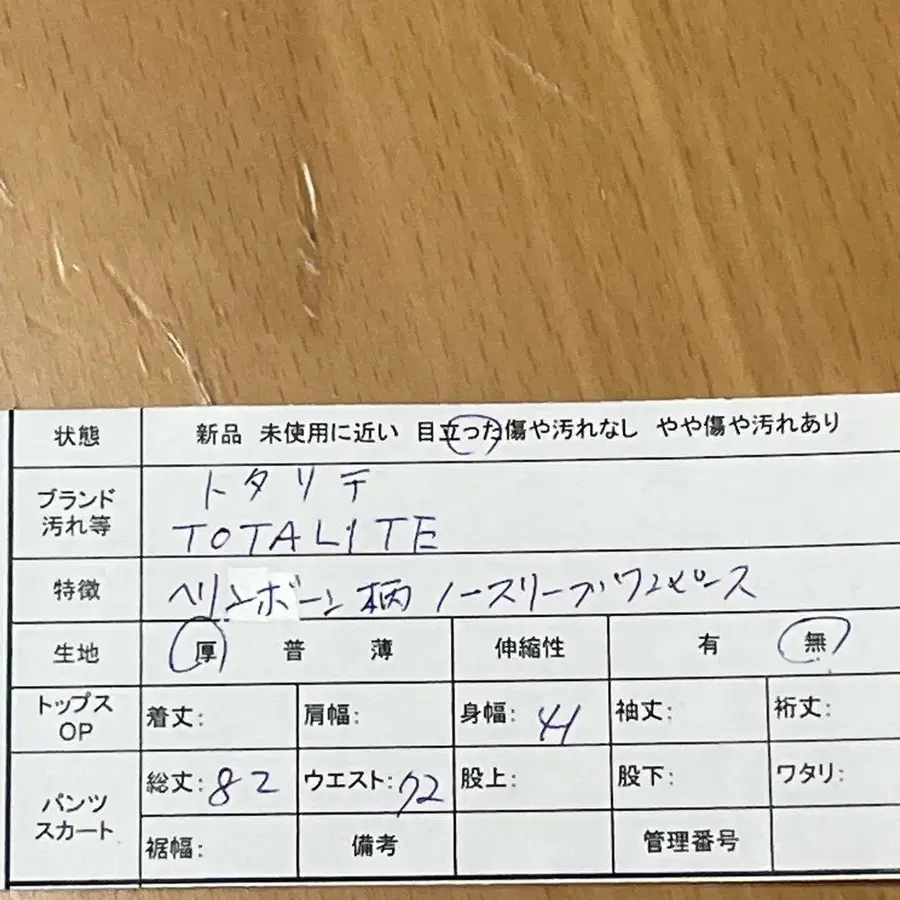 状態 新品 未使用に近い 目立った傷や汚れなし やや傷や汚れあり
ブランド
汚れ等
トタリテ
TOTALITE
特徴 ヘリンボーン柄 ノースリーブワンピース
生地 厚 普 薄 伸縮性 有 無
トップス
OP
着丈: 肩幅: 身幅: 41 袖丈: 裄丈:
パンツ
スカート
総丈: 82 ウエスト: 72 股上: 股下: ワタリ:
裾幅: 備考 管理番号